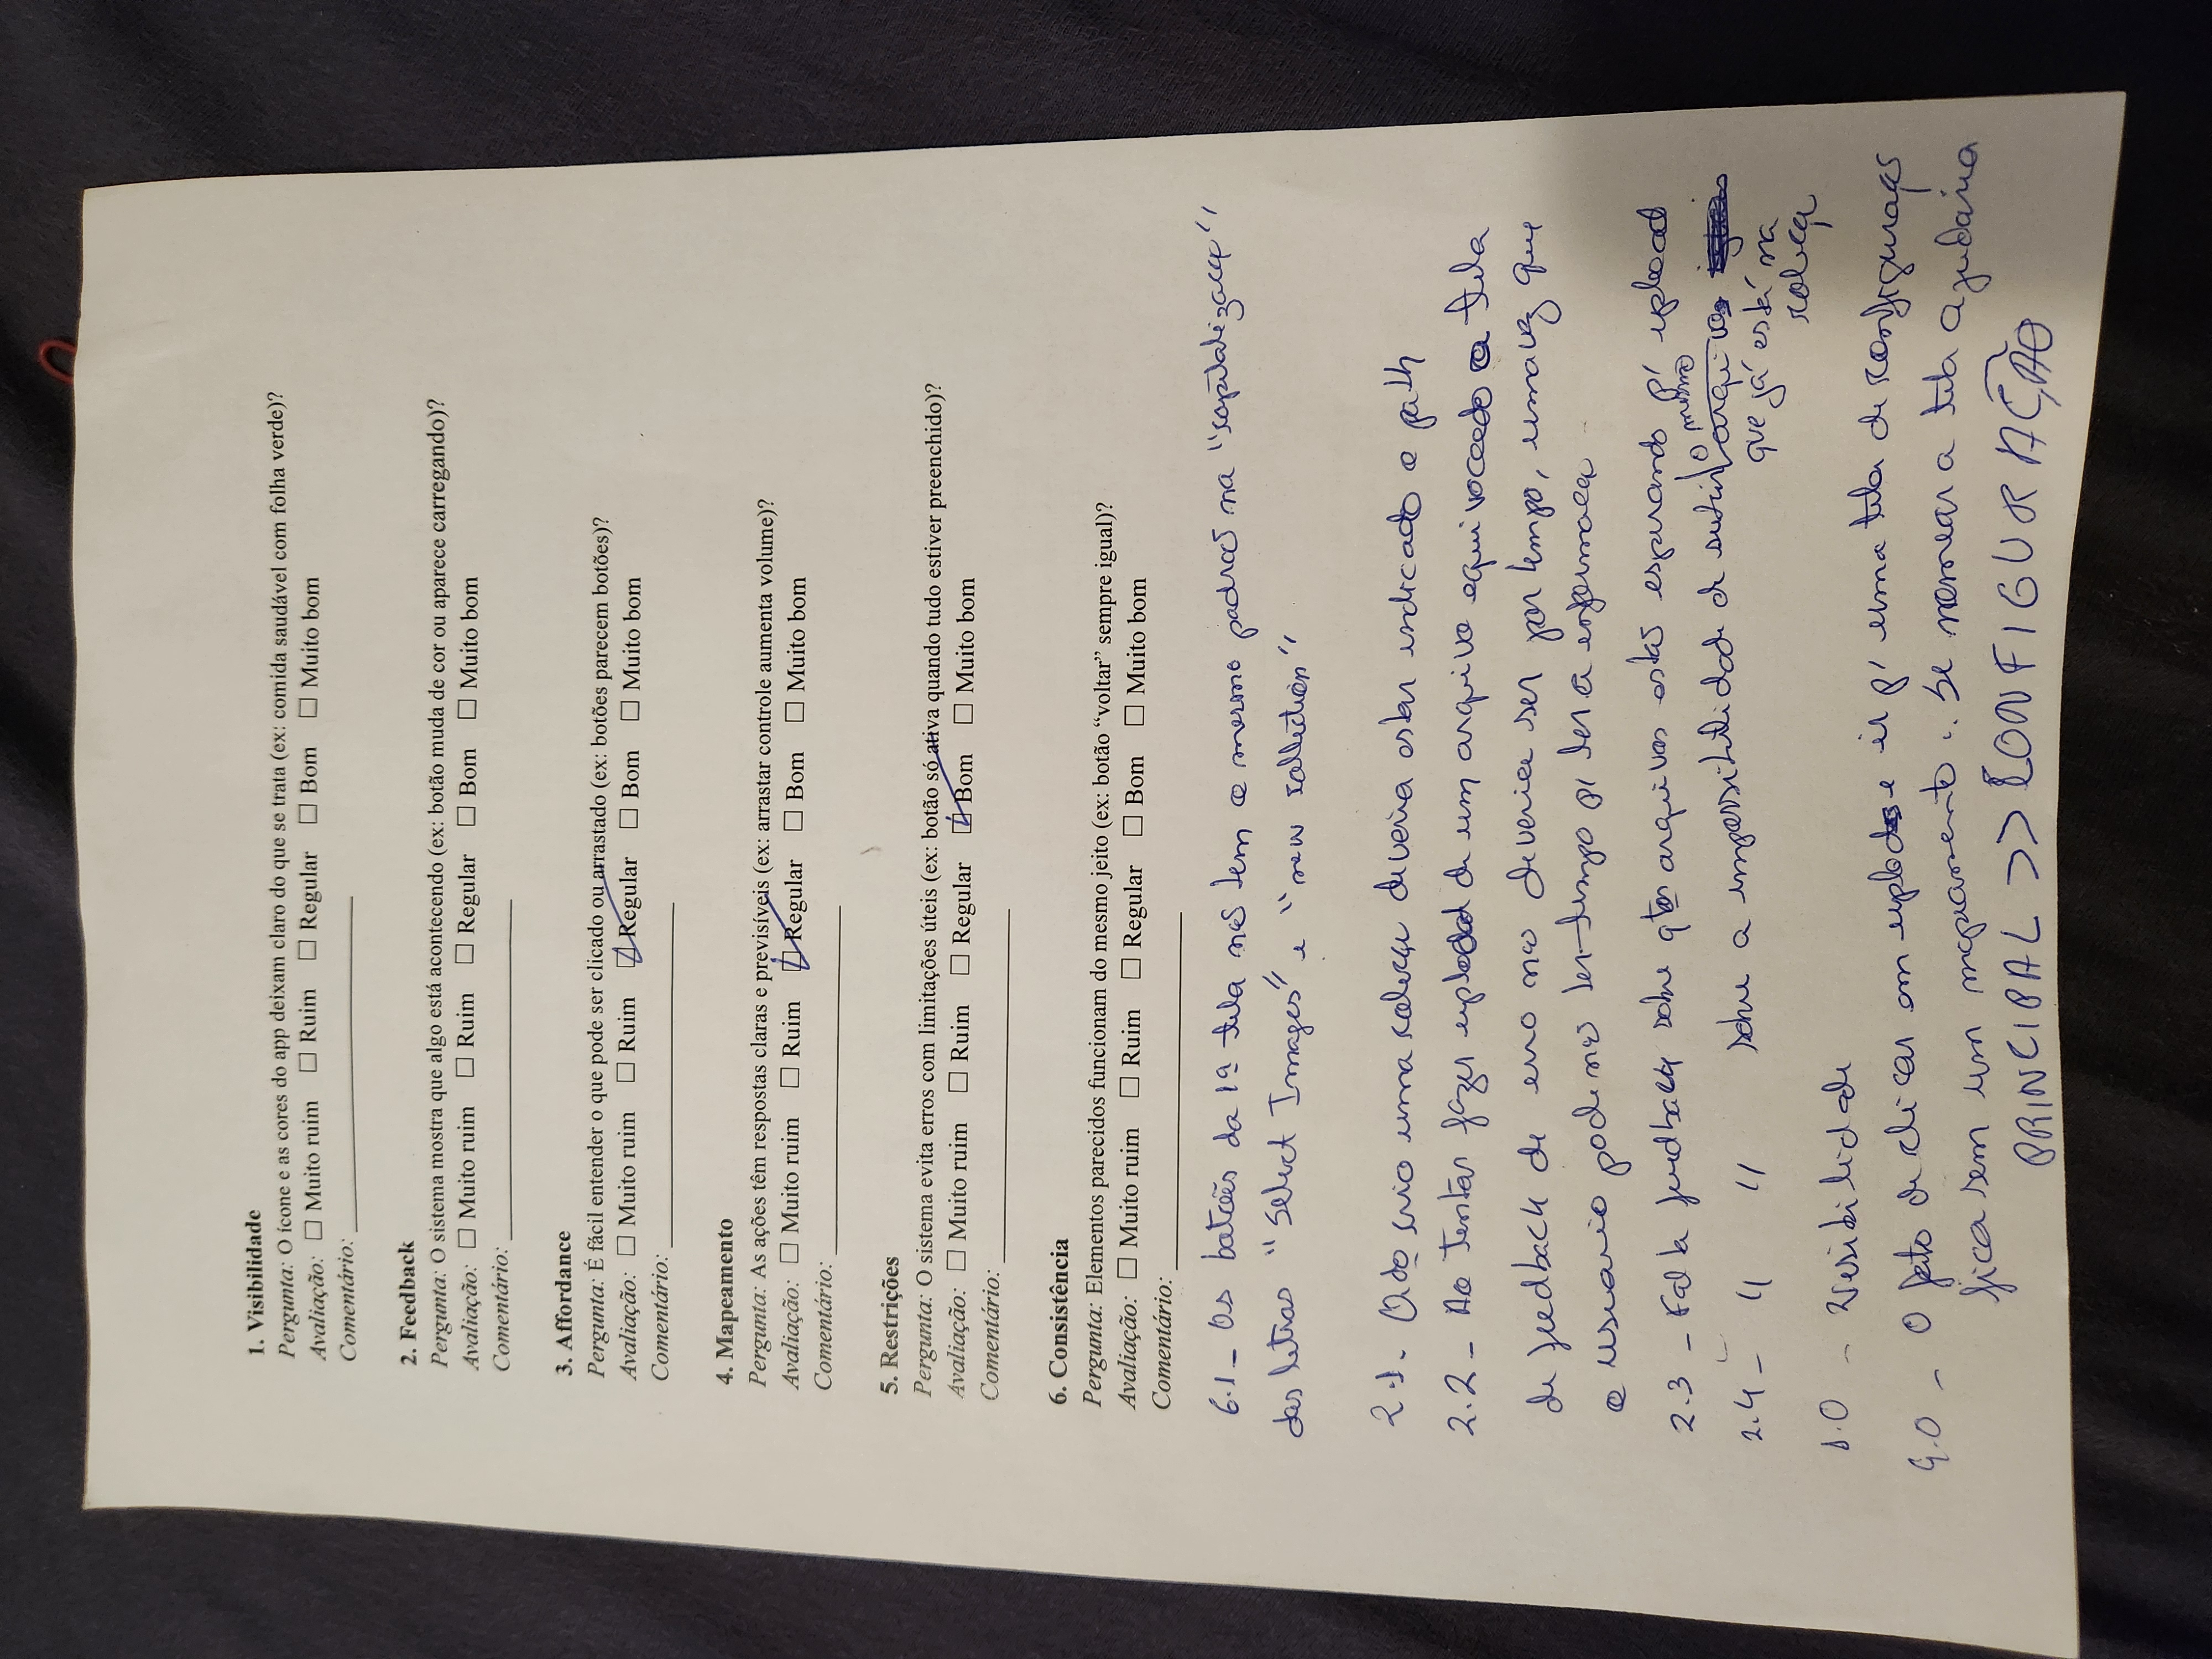 1. Visibilidade
Pergunta: O ícone e as cores do app deixam claro do que se trata (ex: comida saudável com folha verde)?
Avaliação: ☐ Muito ruim ☐ Ruim ☐ Regular ☐ Bom ☐ Muito bom
Comentário: ____________________
2. Feedback
Pergunta: O sistema mostra que algo está acontecendo (ex: botão muda de cor ou aparece carregando)?
Avaliação: ☐ Muito ruim ☐ Ruim ☐ Regular ☐ Bom ☐ Muito bom
Comentário: ____________________
3. Affordance
Pergunta: É fácil entender o que pode ser clicado ou arrastado (ex: botões parecem botões)?
Avaliação: ☐ Muito ruim ☐ Ruim ☑ Regular ☐ Bom ☐ Muito bom
Comentário: ____________________
4. Mapeamento
Pergunta: As ações têm respostas claras e previsíveis (ex: arrastar controle aumenta volume)?
Avaliação: ☐ Muito ruim ☐ Ruim ☑ Regular ☐ Bom ☐ Muito bom
Comentário: ____________________
5. Restrições
Pergunta: O sistema evita erros com limitações úteis (ex: botão só ativa quando tudo estiver preenchido)?
Avaliação: ☐ Muito ruim ☐ Ruim ☐ Regular ☑ Bom ☐ Muito bom
Comentário: ____________________
6. Consistência
Pergunta: Elementos parecidos funcionam do mesmo jeito (ex: botão “voltar” sempre igual)?
Avaliação: ☐ Muito ruim ☐ Ruim ☐ Regular ☐ Bom ☐ Muito bom
Comentário: ____________________
6.1 - Os botões da 1ª tela não tem o mesmo padrão na "capitalização"
das letras "Select Images" e "new collection"
2.1. Qdo crio uma coleção deveria estar indicado o path
2.2 - Ao tentar fazer upload de um arquivo equivocado a tela
de feedback de erro não deveria ser por tempo, uma vez que
o usuario pode não ter tempo p/ ler a informação
2.3 - Falta feedback sobre qtos arquivos estão esperando p/ upload
2.4 - " " sobre a impossibilidade de subir o mesmo arquivo
que já está na
coleção
1.0 - Visibilidade
4.0 - O fato de clicar em upload e ir p/ uma tela de configuração
fica sem um mapeamento. Se nomear a tela ajudaria
PRINCIPAL >> CONFIGURAÇÃO